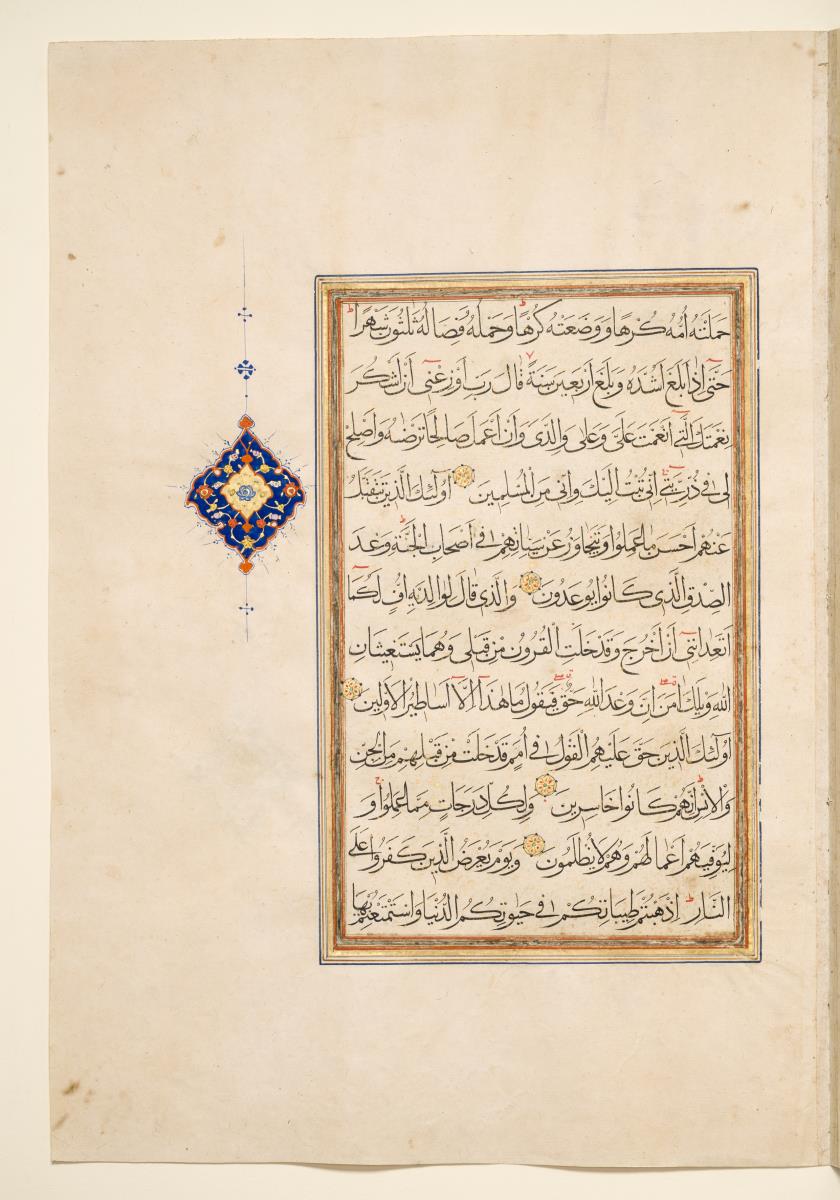 حَمَلَتْهُ أُمُّهُ كُرْهًا وَوَضَعَتْهُ كُرْهًا وَحَمْلُهُ وَفِصَالُهُ ثَلٰثُونَ شَهْرًا
حَتَّى إِذَا بَلَغَ أَشُدَّهُ وَبَلَغَ أَرْبَعِينَ سَنَةً قَالَ رَبِّ أَوْزِعْنِي أَنْ أَشْكُرَ
نِعْمَتَكَ الَّتِي أَنْعَمْتَ عَلَيَّ وَعَلٰى وَالِدَيَّ وَأَنْ أَعْمَلَ صَالِحًا تَرْضٰهُ وَأَصْلِحْ
لِي فِي ذُرِّيَّتِي إِنِّي تُبْتُ إِلَيْكَ وَإِنِّي مِنَ الْمُسْلِمِينَ أُولٰئِكَ الَّذِينَ نَتَقَبَّلُ
عَنْهُمْ أَحْسَنَ مَا عَمِلُوا وَنَتَجَاوَزُ عَنْ سَيِّئَاتِهِمْ فِي أَصْحَابِ الْجَنَّةِ وَعْدَ
الصِّدْقِ الَّذِي كَانُوا يُوعَدُونَ وَالَّذِي قَالَ لِوَالِدَيْهِ أُفٍّ لَكُمَا
أَتَعِدَانِنِي أَنْ أُخْرَجَ وَقَدْ خَلَتِ الْقُرُونُ مِنْ قَبْلِي وَهُمَا يَسْتَغِيثَانِ
اللّٰهَ وَيْلَكَ اٰمِنْ إِنَّ وَعْدَ اللّٰهِ حَقٌّ فَيَقُولُ مَا هٰذَا إِلَّا أَسَاطِيرُ الْأَوَّلِينَ
أُولٰئِكَ الَّذِينَ حَقَّ عَلَيْهِمُ الْقَوْلُ فِي أُمَمٍ قَدْ خَلَتْ مِنْ قَبْلِهِمْ مِنَ الْجِنِّ
وَالْإِنْسِ إِنَّهُمْ كَانُوا خَاسِرِينَ وَلِكُلٍّ دَرَجَاتٌ مِمَّا عَمِلُوا وَ
لِيُوَفِّيَهُمْ أَعْمَالَهُمْ وَهُمْ لَا يُظْلَمُونَ وَيَوْمَ يُعْرَضُ الَّذِينَ كَفَرُوا عَلَى
النَّارِ أَذْهَبْتُمْ طَيِّبَاتِكُمْ فِي حَيٰوتِكُمُ الدُّنْيَا وَاسْتَمْتَعْتُمْ بِهَا